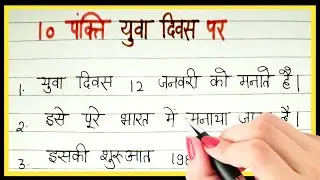 10 पंक्ति युवा दिवस पर
1. युवा दिवस 12 जनवरी को मनाते है।
2. इसे पूरे भारत में मनाया जाता है।
3. इसकी शुरूआत 198